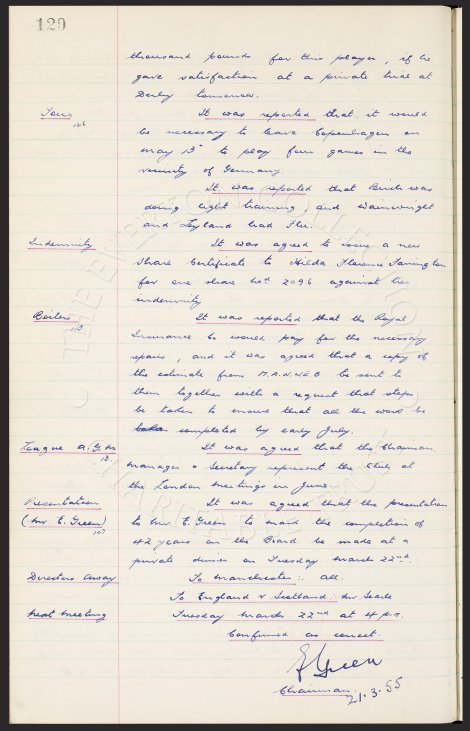 129
thousand pounds for this player, if he
gave satisfaction at a private trial at
Derby tomorrow.
Tour 126 It was reported that it would
be necessary to leave Copenhagen on
May 15 to play four games in the
vicinity of Germany.
It was reported that Birch was
doing light training and Wainwright
and Leyland had Flu.
Indemnity It was agreed to issue a new
Share Certificate to Hilda Florence
for one share No. 2096 against her
indemnity
Boilers 113. It was reported that the Royal
Insurance Co would pay for the necessary
repairs, and it was agreed that a copy of
the estimate from be sent to
them together with a request that steps
be taken to ensure that all the work be
completed by early July.
League A.G.M It was agreed that the Chairman
Manager & Secretary represent the Club at
the London meetings in June.
Presentation It was agreed that the presentation
(Mr E. Green) 107 to Mr E. Green to mark the completion of
42 years on the Board be made at a
private dinner on Tuesday March 22nd.
Directors Away To Manchester:. all.
To England v Scotland: Mr Searle
Next Meeting Tuesday March 22nd at 4 p.m.
Confirmed as correct.
E Green
Chairman. 21.3.55
THE EVERTON COLLECTION
CHARITABLE TRUST